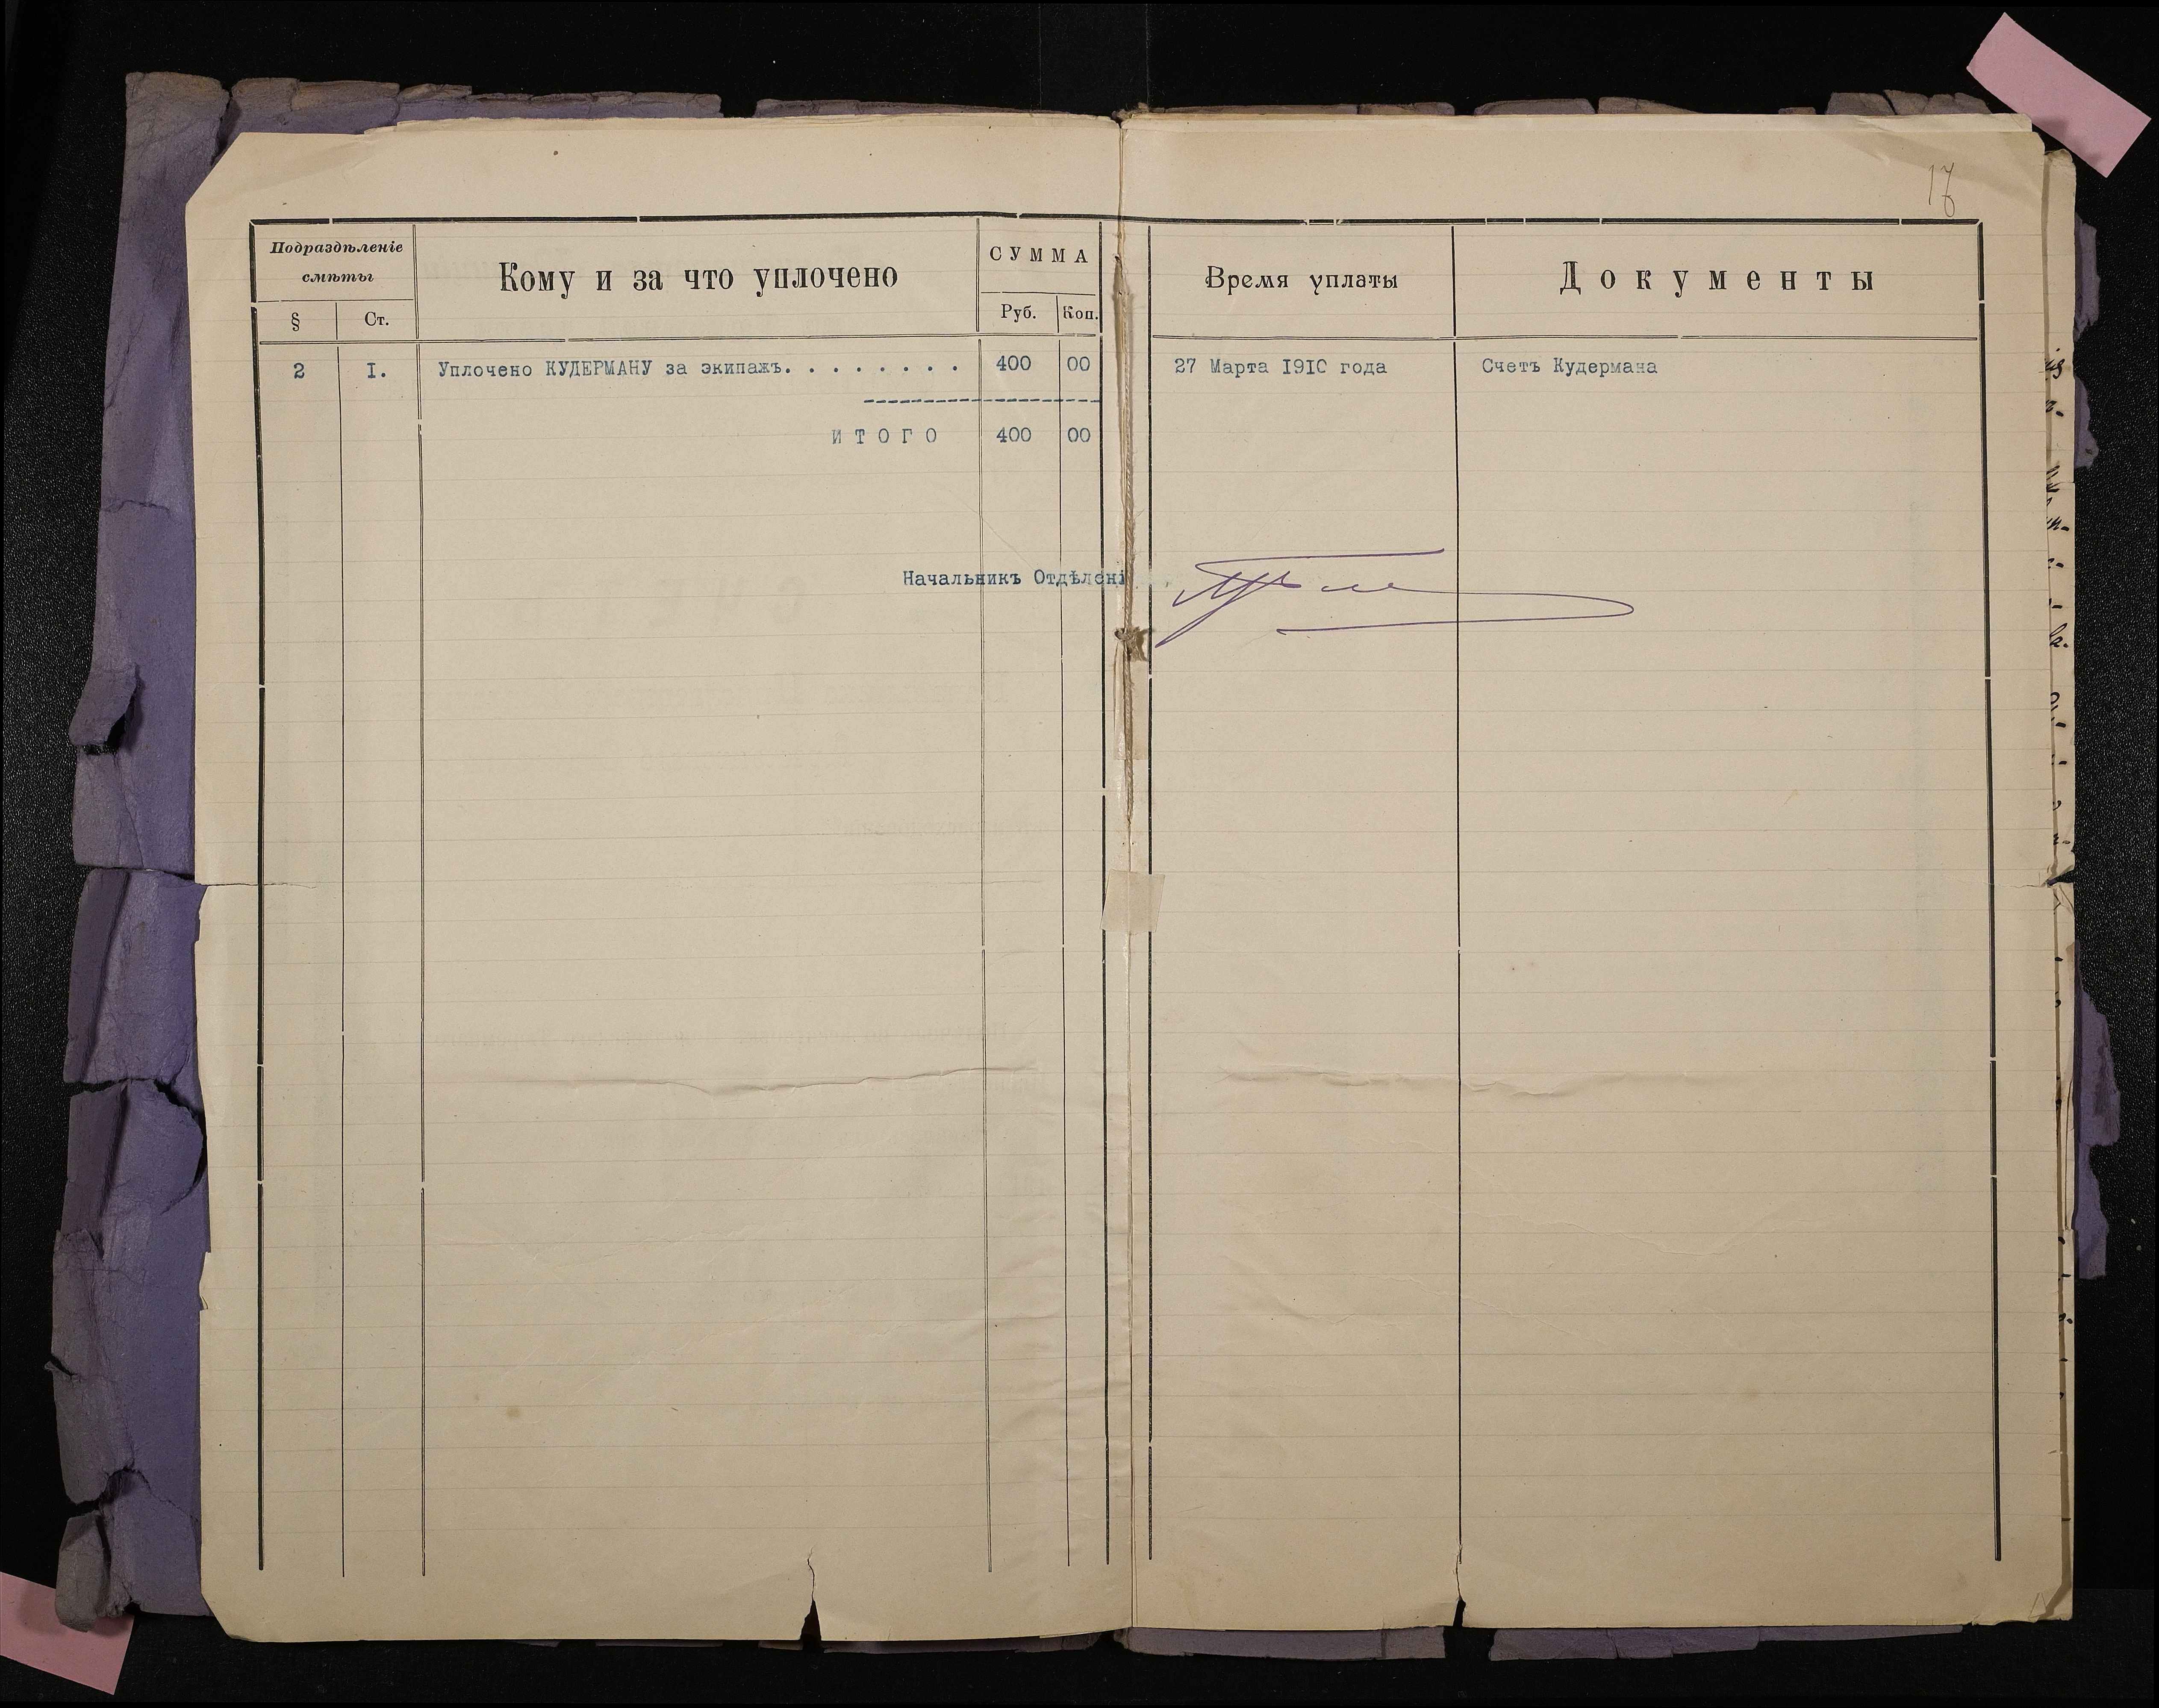 17
Подраздѣленіе
смѣты
§ Ст.
Кому и за что уплочено
СУММА
Руб. Коп.
Время уплаты
Документы
2 I. Уплочено КУДЕРМАНУ за экипажъ. . . . . . . . . 400 00 27 Марта 1910 года Счетъ Кудермана
ИТОГО 400 00
Начальникъ Отдѣлені